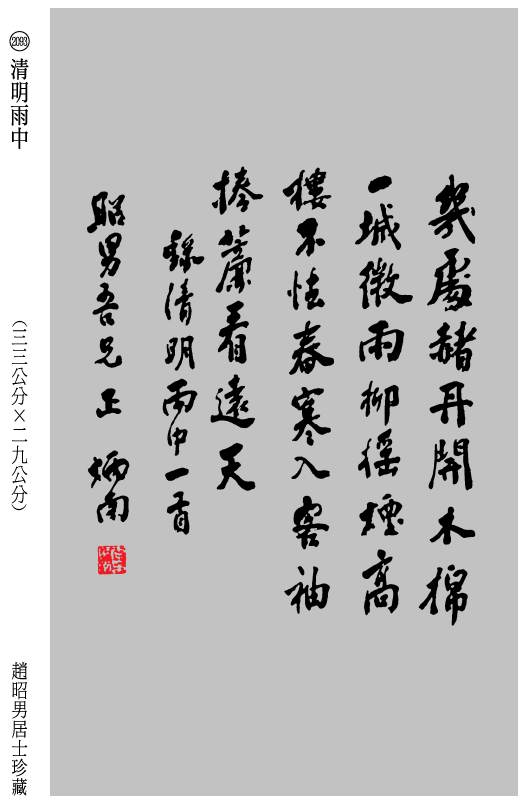 幾處赭丹開木棉
一城微雨柳搖煙高
樓不怯春寒入客袖
捲簾看遠天
錄清明雨中一首
昭男吾兄正 炳南
2093 清明雨中 （三三公分×二九公分） 趙昭男居士珍藏